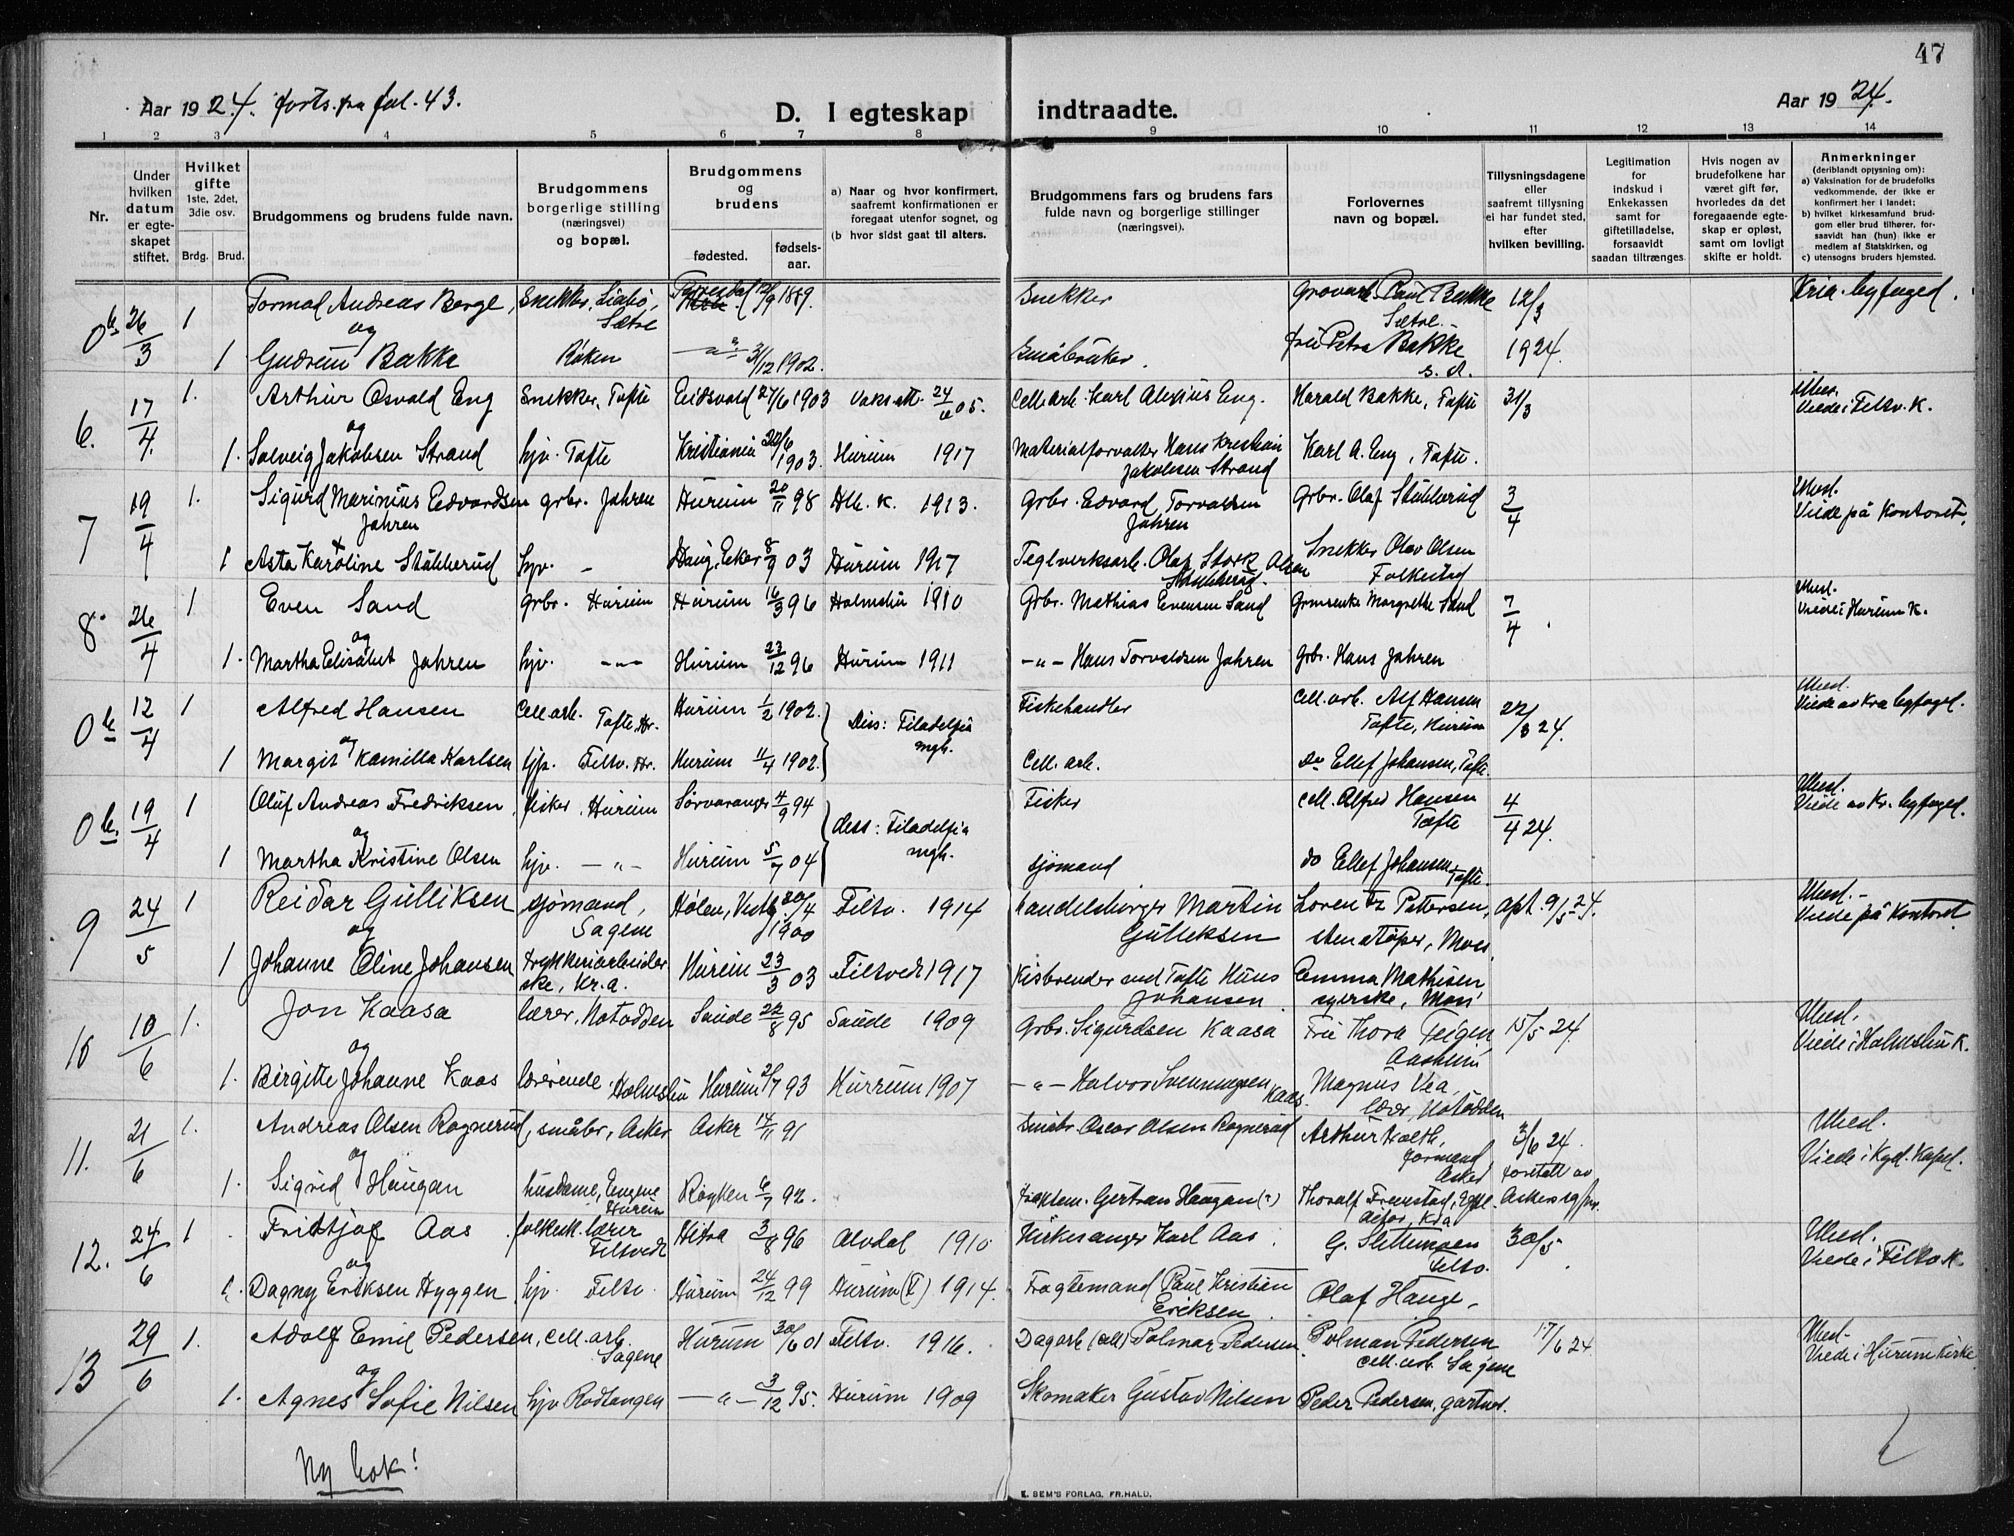 47
Aar 1924. forts. fra fol. 43.
D. I egteskap indtraadte.
Aar 1924.
1 2 3 4 5 6 7 8 9 10 11 12 13 14
Nr.
Under hvilken datum er egteskapet stiftet.
Hvilket gifte
1ste, 2det, 3die osv.
Brdg. Brud.
Brudgommens og brudens fulde navn.
Brudgommens borgerlige stilling (næringsvei) og bopæl.
Brudgommens og brudens
fødested. fødsels-aar.
a) Naar og hvor konfirmert, saafremt konfirmationen er foregaat utenfor sognet, og
(b hvor sidst gaat til alters.
Brudgommens fars og brudens fars fulde navn og borgerlige stillinger (næringsvei).
Forlovernes navn og bopæl.
Tillysningsdagene eller saafremt tillysning ei har fundet sted, efter hvilken bevilling.
Legitimation for indskud i Enkekassen samt for giftetilladelse, forsaavidt saadan tiltrænges
Hvis nogen av brudefolkene har været gift før, hvorledes da det foregaaende egteskap er opløst, samt om lovligt skifte er holdt.
Anmerkninger
(deriblandt opjysning om):
a) Vaksination for de brudefolks vedkommende, der ikke er konfirmert her i landet;
b) hvilket kirkesamfund brudgom eller brud tilhører, forsaavidt han (hun) ikke er medlem av Statskirken, og
c) utensogns bruders hjemsted.
26/3 1 Tormod Andreas Berge, Snekker, 12/9 1889. Snekker Paul Bakke Sætre. 12/3 Kria. byfoged.
og
1 Gudrun Bakke Røken -"- 3/12 1902. Småbruker. fru Petra Bakke s. st. 1924.
6. 17/4 1. Arthur Osvald Eng Snekker, Tofte Eidsvold 27/6 1903 Vaks att. Cell. arb. Karl Alexius Eng. Harald Bakke, Tofte 31/3 Viede i Filtv. K.
og
1. Solveig Jakobsen Strand hjv. Tofte Kristiania 22/6 1903. Hurum 1917 Materialforvalter Hans Kristian Jakobsen Strand Karl A. Eng, Tofte.
7 19/4 1. Sigurd Marinius Edvardsen Jahren grbr. Jahren Hurum 20/11 98 Hlb. K. 1913. Grbr. Edvard Torvaldsen Jahren Grbr. Olaf Stubberud 3/4 Viede på Kontoret.
1 Asta Karoline Stubberud hjv. - Haug, Eker 8/9 03 Hurum 1917 Teglverksarb. Olaf Stubberud. Snekker Olav Olsen Folkestad
8. 26/4 1 Even Sand Grbr. Hurum Hurum 16/3 96 Holmsbu 1910 Grbr. Mathias Evensen Sand Margrethe Sand 7/4. Viede i Hurum K.
og
1. Martha Elisabet Jahren hjv. -"- Hurum 23/12 96 Hurum 1911 -"- Hans Torvaldsen Jahren Grbr. Hans Jahren
12/4 1 Alfred Hansen Cell. arb. Tofte, Hr. Hurum 1/2 1902. Diss: Filadelfia mgh. Fiskehandler Cell. arb. Alf Hansen Tofte, Hurum 22/3 24. Viede av Kra byfoged.
og
1 Margit Kamilla Karlsen hjp. Filtv. Hr. Hurum 11/4 1902. Cell. arb. Do Ellef Johansen, Tofte.
19/4 1 Oluf Andreas Fredriksen, fisker, Hurum Sørvaranger 4/9 94 Diss: Filadelfia mgh. Fisker Cell. Alfred Hansen Tofte 4/4 24. Viede av Kr. byfoged.
og
1 Martha Kristine Olsen hjv. -"- Hurum 5/7 04 sjømand do Ellef Johansen Tofte.
9 24/5 1 Reidar Gulliksen sjømand, Sagene Hølen, Vestby 30/4 1900 Filtv. 1914 handelsborger Martin Gulliksen Lorentz Pettersen, stenstøper, Moss 9/5 24. Viede på Kontoret
og
1 Johanne Oline Johansen trykkeriarbeiderske, Kr.a. Hurum 23/3 03 Filtvedt 1917 Kisbrender ved Tofte Hans Johansen Emma Mathisen syerske, Moss
10 10/6 1. Jon Kaasa lærer, Notodden Saude 22/8 95 Saude 1909 Grbr. Sigurdsen Kaasa Fru Thora Teigen 15/5 24. Viede i Holmsbu K.
og
1. Birgitte Johanne Kaas lærerinde Holmsbu Hurum 21/7 93 Hurum 1907 -"- Halvor Svenningsen Kaas. Magnus Vea, lærer, Notodden
11. 21/6 1. Andreas Olsen Rognerud, småbr, Asker Asker 14/11 91 Småbr Oscar Olsen Rognerud Arthur Holth, Asker 3/6 24. Viede i Kgd. Kapel.
og
1. Sigrid Haugan husdame, Hurum Røyken 6/7 92. Gertran Haugan (?) Thoralf Kra
12. 24/6 1. Fridtjof Aas folkesk. lærer Filtvedt Hitra 3/8 96 Alvdal 1910 Kirkesanger Karl Aas. G. Slettemoen Filtv. 30/5. Viede i Filtv K.
og
1. Dagny Eriksen Hyggen hjv. Filtv. Hurum 24/12 99 Hurum (F) 1914. Fragtemand Paul Kristian Eriksen Olaf Hauge,
13 29/6 1. Adolf Emil Pedersen, cell. arb. Sagene Hurum 30/6 01 Filtv. 1916. Dagarb (cell) Polmar Pedersen. Polman Pedersen cell. arb. Sagene 17/6 24 Viede i Hurum Kirke
og
1. Agnes Sofie Nilsen hjv Rødtangen -"- 3/12 95. Hurum 1909 Skomaker Gustav Nilsen Peder Pedersen, gartner.
Ny bok!
E. SEM'S FORLAG, FR.HALD.